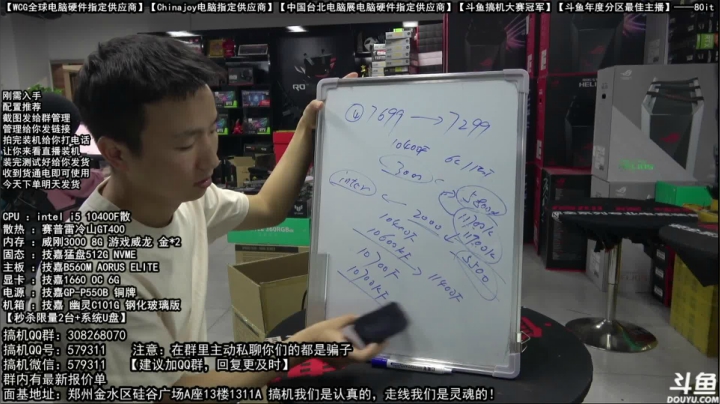 【WCG全球电脑硬件指定供应商】【Chinajoy电脑指定供应商】【中国台北电脑展电脑硬件指定供应商】【斗鱼搞机大赛冠军】【斗鱼年度分区最佳主播】——80it
刚需入手
配置推荐
截图发给群管理
管理给你发链接
拍完装机给你打电话
让你来看直播装机
装完测试好给你发货
收到货通电即可使用
今天下单明天发货
CPU : intel i5 10400F散
散热 : 赛普雷冷山GT400
内存 : 威刚3000 8G 游戏威龙 金*2
固态 : 技嘉猛盘512G NVME
主板 : 技嘉B560M AORUS ELITE
显卡 : 技嘉1660 OC 6G
电源 : 技嘉GP-P550B 铜牌
机箱 : 技嘉 幽灵C101G 钢化玻璃版
【秒杀限量2台+系统U盘】
搞机QQ群: 308268070
搞机QQ号: 579311 注意: 在群里主动私聊你们的都是骗子
搞机微信: 579311 【建议加QQ群，回复更及时】
群内有最新报价单
面基地址: 郑州金水区硅谷广场A座13楼1311A 搞机我们是认真的，走线我们是灵魂的！
④ 7699 → 7299
10400F
3000
inter
2000
11700K
5500
10600F
10600KF
10700F → 11400F
10700KF
斗鱼
DOUYU.COM